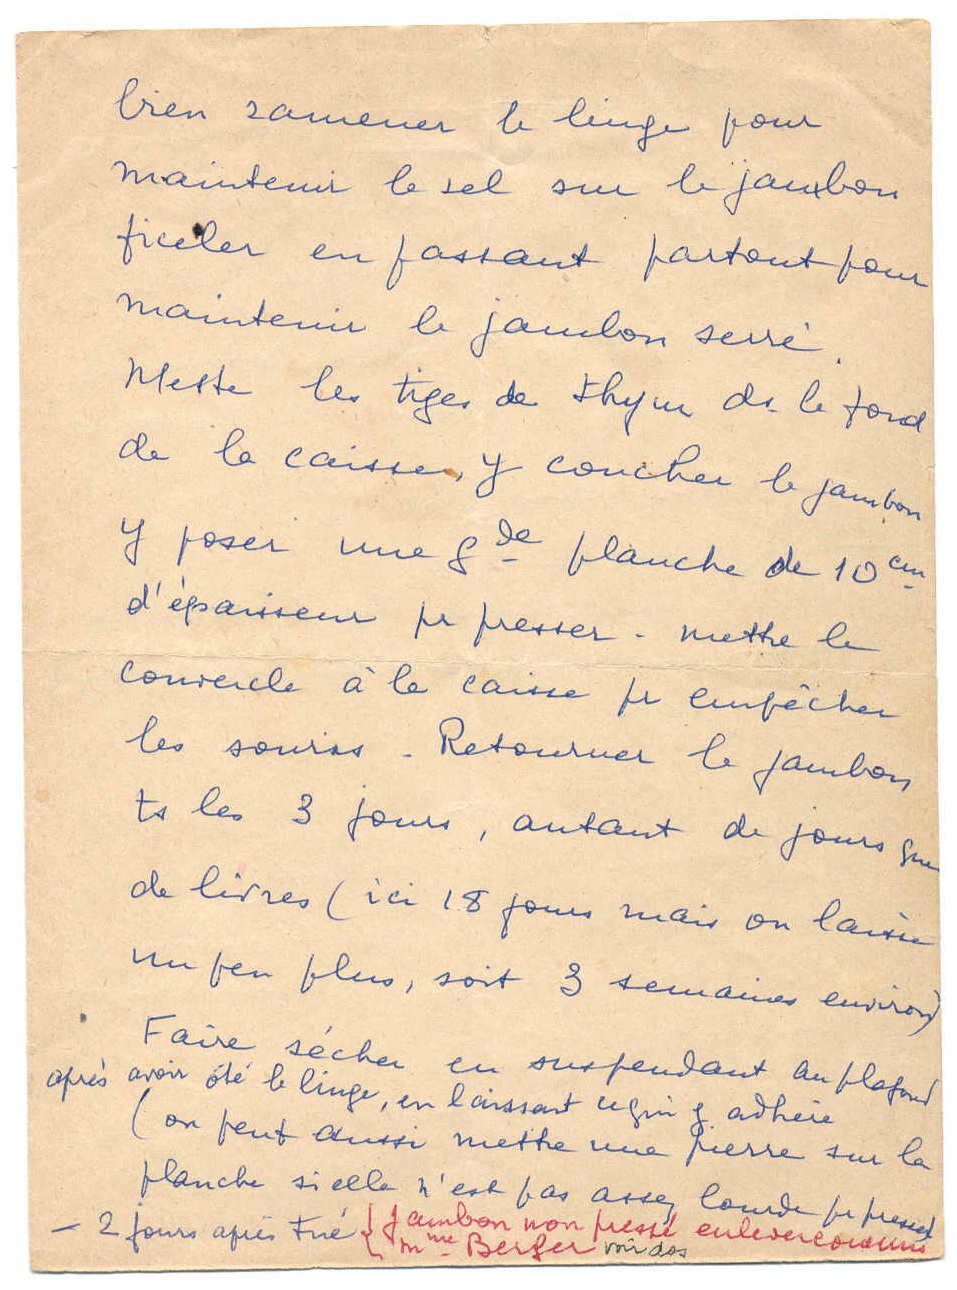 bien ramener le linge pour
maintenir le sel sur le jambon
ficeler en passant partout pour
maintenir le jambon serré.
Mettre les tiges de thym ds le fond
de la caisse, y coucher le jambon
y poser une gde planche de 10 cm
d'épaisseur pr presser - mettre le
couvercle à la caisse pr empêcher
les souris - Retourner le jambon
ts les 3 jours, autant de jours que
de livres (ici 18 jours mais on laisse
un peu plus, soit 3 semaines environ)
Faire sécher en suspendant au plafond
après avoir ôté le linge, en laissant ce qui y adhère
(on peut aussi mettre une pierre sur la
planche si elle n'est pas assez lourde pr presser)
- 2 jours après tué { Jambon non pressé enlever
Mme Berger voir dos